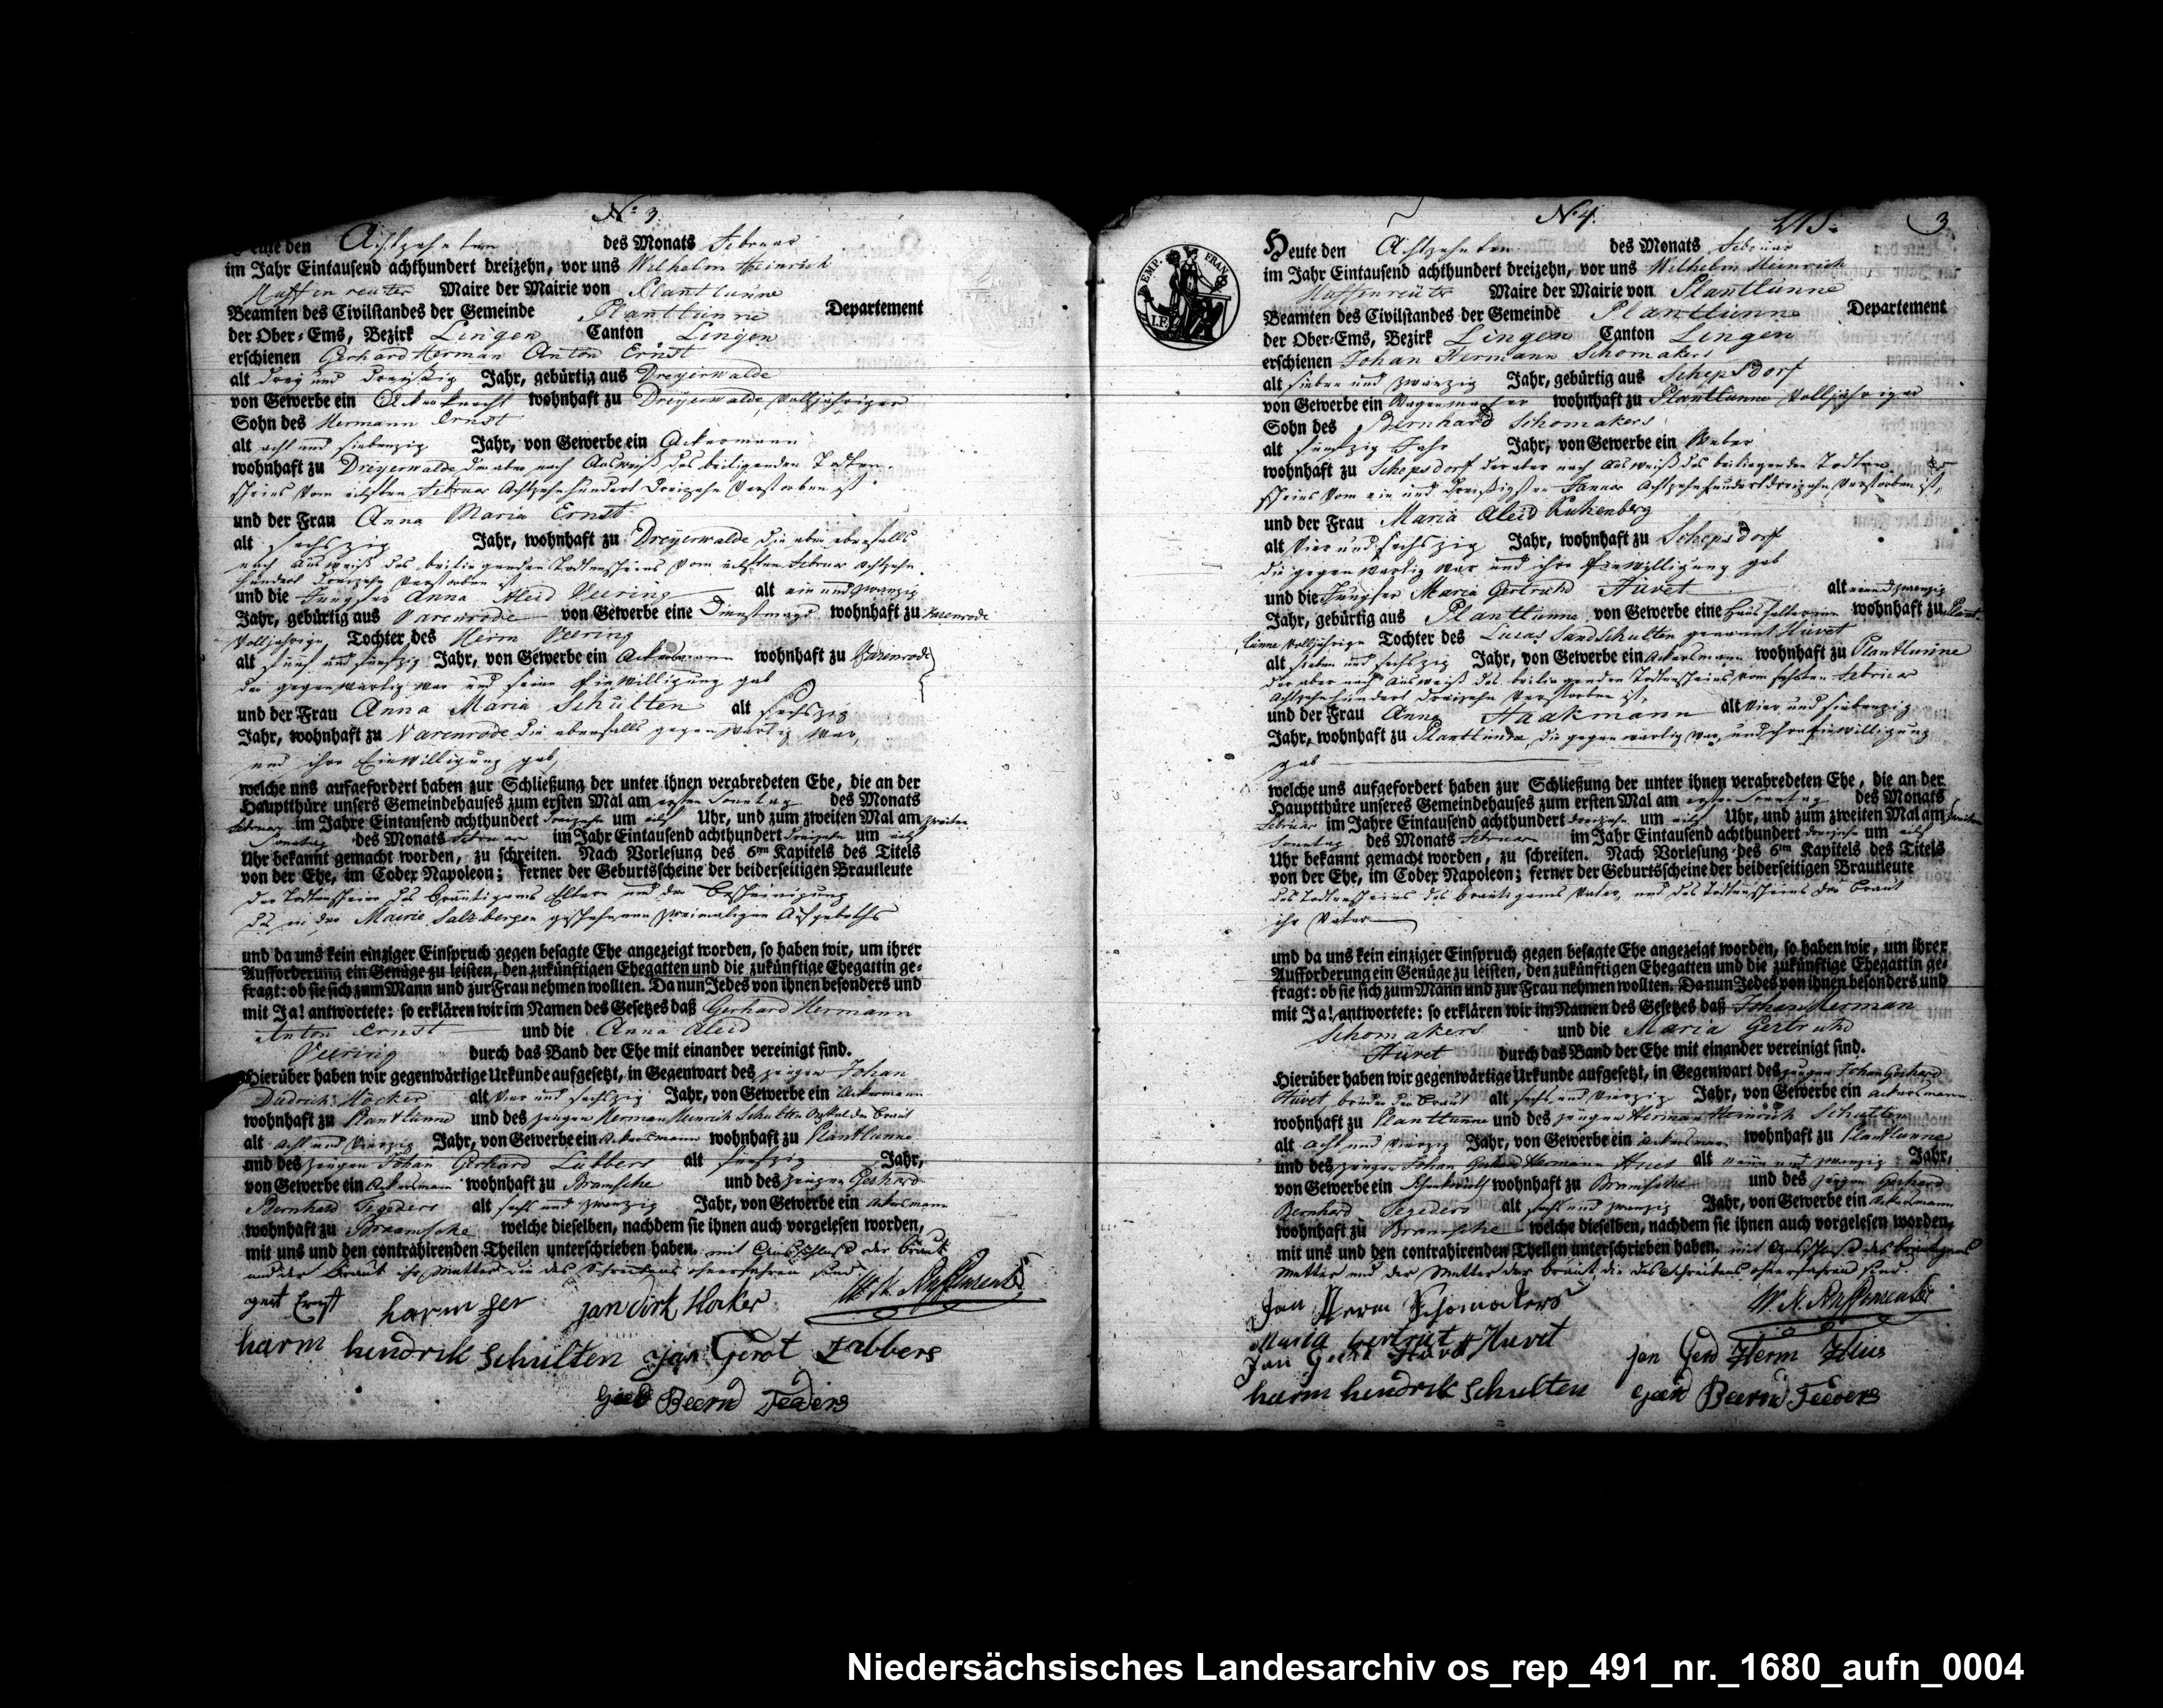 No. 3.
Heute den Achtzehnten des Monats Februar
im Jahr Eintausend achthundert dreizehn, vor uns Wilhelm Heinrich
Maire der Mairie von Plantlünne
Beamten des Civilstandes der Gemeinde Plantlünne Departement
der Ober-Ems, Bezirk Lingen Canton Lingen
erschienen Gerhard Herman Anton Ernst
alt drey und dreyßig Jahr, gebürtig aus Dreyerwalde
von Gewerbe ein Ackerknecht wohnhaft zu Dreyerwalde, Volljähriger
Sohn des Hermann Ernst
alt acht und siebenzig Jahr, von Gewerbe ein Ackermann
wohnhaft zu Dreyerwalde der aber nach Ausweiß des beiligenden Todten
scheins vom eilften Februar Achtzehnhundert dreizehn Verstorben ist
und der Frau Anna Maria Ernst
alt sechszig Jahr, wohnhaft zu Dreyerwalde die aber ebenfalls
nach Ausweiß des beiligenden Todtenscheins vom eilften Februar Achtzehn
hundert dreizehn Verstorben ist
und die Jungfer Anna Aleid Veering alt ein und zwanzig
Jahr, gebürtig aus Varenrode von Gewerbe eine Dienstmagd wohnhaft zu Varenrode
Volljährige Tochter des Herm Veering
alt fünf und fünfzig Jahr, von Gewerbe ein Ackersmann wohnhaft zu Varenrode
der gegenwärtig war und seine Einwilligung gab
und der Frau Anna Maria Schulten alt sechszig
Jahr, wohnhaft zu Varenrode die ebenfalls gegenwärtig war,
und ihre Einwilligung gab,
welche uns aufgefordert haben zur Schließung der unter ihnen verabredeten Ehe, die an der
Hauptthüre unsers Gemeindehauses zum ersten Mal am ersten Sonntag des Monats
Februar im Jahre Eintausend achthundert dreizehn um eilf Uhr, und zum zweiten Mal am zweiten
Sonntag des Monats Februar im Jahr Eintausend achthundert dreizehn um eilf
Uhr bekannt gemacht worden, zu schreiten. Nach Vorlesung des 6ten Kapitels des Titels
von der Ehe, im Codex Napoleon; ferner der Geburtsscheine der beiderseitigen Brautleute
der Todtenscheine des Bräutigams Eltern und der Bescheinigung
des in der Mairie Salzbergen geschehenen zweimaligen Aufgeboths
und da uns kein einziger Einspruch gegen besagte Ehe angezeigt worden, so haben wir, um ihrer
Aufforderung ein Genüge zu leisten, den zukünftigen Ehegatten und die zukünftige Ehegattin ge-
fragt: ob sie sich zum Mann und zur Frau nehmen wollten. Da nun Jedes von ihnen besonders und
mit Ja! antwortete: so erklären wir im Namen des Gesetzes daß Gerhard Hermann
Anton Ernst und die Anna Aleid
Veering durch das Band der Ehe mit einander vereinigt sind.
Hierüber haben wir gegenwärtige Urkunde aufgesetzt, in Gegenwart des zeugen Johan
Diedrich Höcker alt Vier und sechszig Jahr, von Gewerbe ein Ackermann
wohnhaft zu Plantlünne und des zeugen Herman Heinrich Schulten Onkel der Braut
alt acht und Vierzig Jahr, von Gewerbe ein Ackersmann wohnhaft zu Plantlünne
und des zeugen Johan Gerhard Lübbers alt fünfzig Jahr,
von Gewerbe ein Ackersmann wohnhaft zu Bramsche und des zeugen Gerhard
Bernhard Tegeders alt sechs und zwanzig Jahr, von Gewerbe ein Ackersmann
wohnhaft zu Braamsche welche dieselben, nachdem sie ihnen auch vorgelesen worden,
mit uns und den contrahirenden Theilen unterschrieben haben. mit Ausschluß der Braut
und der Braut ihre Mutter die des Schreibens ohnerfahren sind
gerd Ernst harm fer jan dirk Hocker
harm hendrik Schulten jan Gerot Lubbers
Gerd Beernd Teaders
No. 4.
3
EMP. FRAN.
Heute den Achtzehnten des Monats Februar
im Jahr Eintausend achthundert dreizehn, vor uns Wilhelm Heinrich
Maire der Mairie von Plantlünne
Beamten des Civilstandes der Gemeinde Plantlünne Departement
der Ober-Ems, Bezirk Lingen Canton Lingen
erschienen Johan Hermann Schomakers
alt sieben und zwanzig Jahr, gebürtig aus Schepsdorf
von Gewerbe ein Wagenmacher wohnhaft zu Plantlünne Volljähriger
Sohn des Bernhard Schomakers
alt fünfzig Jahr Jahr, von Gewerbe ein Weber
wohnhaft zu Schepsdorf der aber nach Ausweiß des beiliegenden Todten
scheins vom ein und dreißigsten Januar Achtzehnhundert dreizehn Verstorben ist,
und der Frau Maria Aleid Ruhenberg
alt Vier und sechszig Jahr, wohnhaft zu Schepsdorf
die gegenwärtig war und ihre Einwilligung gab
und die Jungfer Maria Gertruhd Hüvet alt ein und zwanzig
Jahr, gebürtig aus Plantlünne von Gewerbe eine Haushälterin wohnhaft zu Plant-
lünne Volljährige Tochter des Lucas Sandschulten genannt Hüvet
alt sieben und sechszig Jahr, von Gewerbe ein Ackersmann wohnhaft zu Plantlünne
der aber nach Ausweiß des beiliegenden Todtenscheins vom sechsten Februar
Achtzehnhundert dreizehn Verstorben ist,
und der Frau Anna Haakmann alt Vier und siebenzig
Jahr, wohnhaft zu Plantlünne, die gegenwärtig war, und ihre Einwilligung
gab
welche uns aufgefordert haben zur Schließung der unter ihnen verabredeten Ehe, die an der
Hauptthüre unseres Gemeindehauses zum ersten Mal am ersten Sonntag des Monats
Februar im Jahre Eintausend achthundert dreizehn um eilf Uhr, und zum zweiten Mal am zweiten
Sonntag des Monats Februar im Jahr Eintausend achthundert dreizehn um eilf
Uhr bekannt gemacht worden, zu schreiten. Nach Vorlesung des 6ten Kapitels des Titels
von der Ehe, im Codex Napoleon; ferner der Geburtsscheine der beiderseitigen Brautleute
des Todtenscheins des Bräutigams Vater, und des Todtenscheins der Braut
ihr Vater
und da uns kein einziger Einspruch gegen besagte Ehe angezeigt worden, so haben wir, um ihrer
Aufforderung ein Genüge zu leisten, den zukünftigen Ehegatten und die zukünftige Ehegattin ge-
fragt: ob sie sich zum Mann und zur Frau nehmen wollten. Da nun Jedes von ihnen besonders und
mit Ja! antwortete: so erklären wir im Namen des Gesetzes daß Johan Herman
Schomakers und die Maria Gertruhd
Hüvet durch das Band der Ehe mit einander vereinigt sind.
Hierüber haben wir gegenwärtige Urkunde aufgesetzt, in Gegenwart des zeugen Johan Gerhard
Hüvet bruder der Braut alt sechs und Vierzig Jahr, von Gewerbe ein Ackersmann
wohnhaft zu Plantlünne und des zeugen Herman Heinrich Schulten
alt acht und Vierzig Jahr, von Gewerbe ein Ackersman wohnhaft zu Plantlünne
und des zeugen Johan Gerhard Hermann Hües alt neun und zwanzig Jahr,
von Gewerbe ein Schenkwirth wohnhaft zu Bramsche und des zeugen Gerhard
Bernhard Tegeders alt sechs und zwanzig Jahr, von Gewerbe ein Ackersmann
wohnhaft zu Bramsche welche dieselben, nachdem sie ihnen auch vorgelesen worden,
mit uns und den contrahirenden Theilen unterschrieben haben. mit Ausschluß des Bräutigams
Mutter und der Mutter der Braut, die des Schreibens ohnerfahren sind.
Jan Herm Schomakers
Maria Gertrut Huvet
Jan Gerd Huvet jan Gerd Herm Hües
harm hendrik Schulten Gerd Beernd Teeders
Niedersächsisches Landesarchiv os_rep_491_nr._1680_aufn_0004